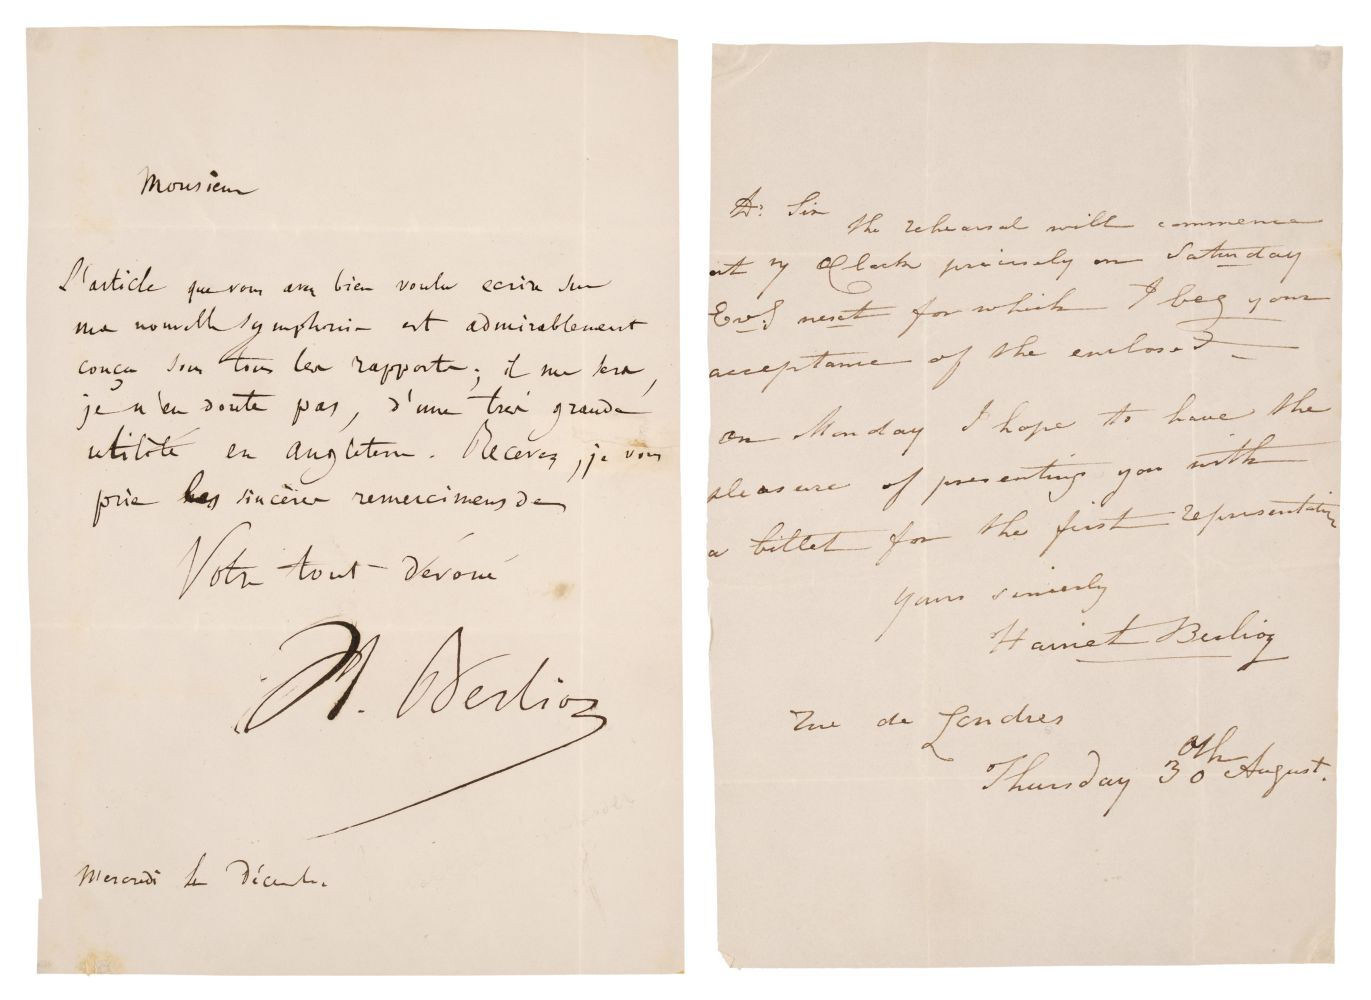 Monsieur
L'article que vous avez bien voulu ecrire sur
ma nouvelle symphonie est admirablement
conçu sous tous les rapports; il me sera,
je n'en doute pas, d'une très grande
utilité en angleterre. Recevez, je vous
prie les sincères remercimens de
Votre tout dévoué
H. Berlioz
Mercredi Décembre
Dr. Sir the rehearsal will commence
at 7 O Clock precisely on Saturday
Evg next for which I beg your
acceptance of the enclosed—
on Monday I hope to have the
pleasure of presenting you with
a billet for the first representation
yours sincerly
Harriet Berlioz
rue de Londres
Thursday 30th August.